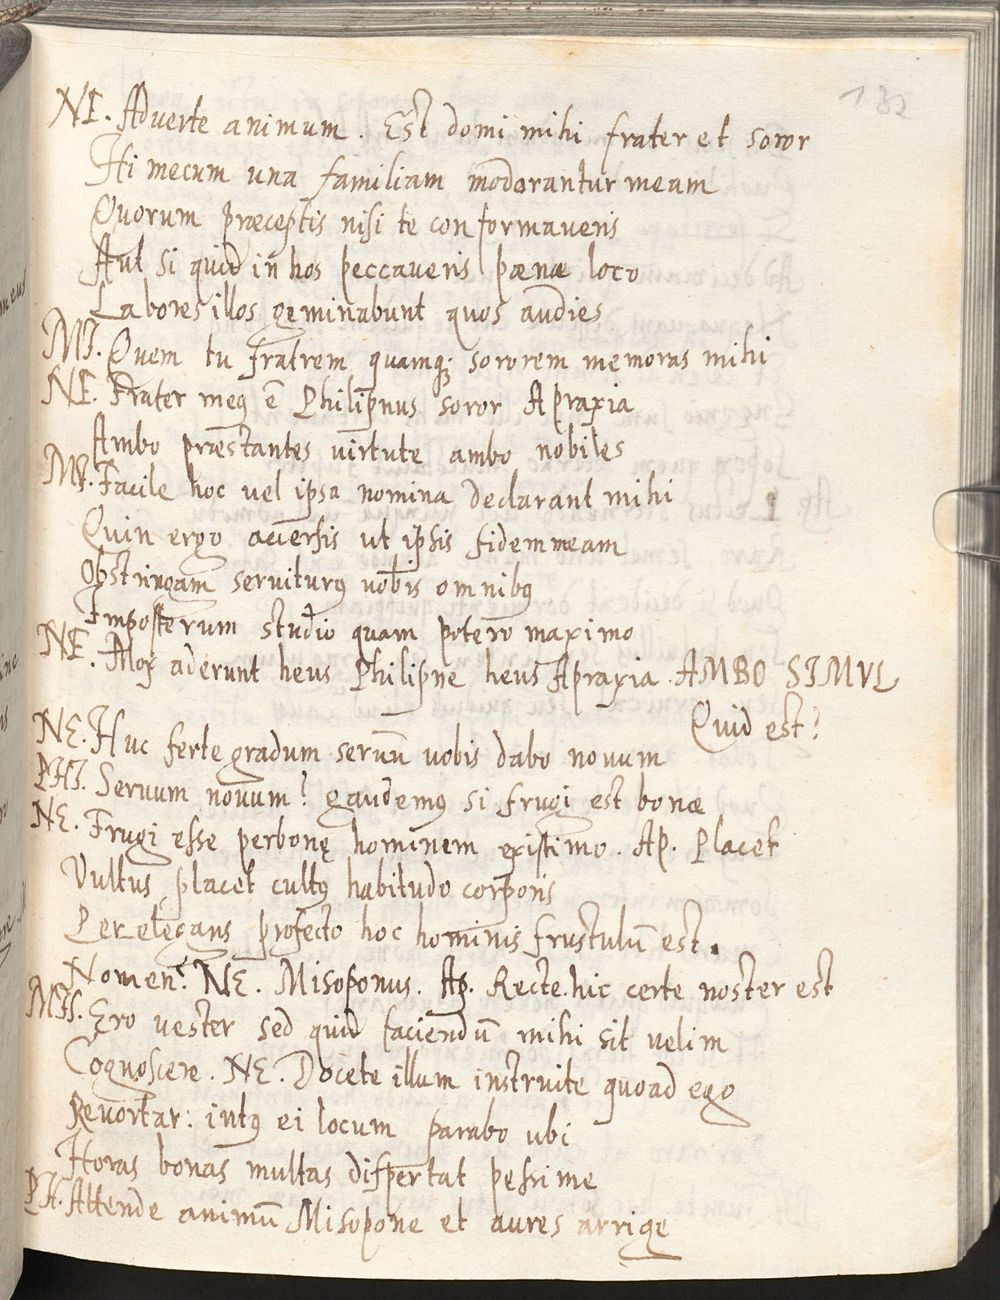 132
NE. Aduerte animum. Est domi mihi frater et soror
Hi mecum una familiam modorantur meam
Quorum præceptis nisi te conformaveris
Aut si quid in hos peccaveris pænæ loco
Labores illos geminabunt quos audies
MI. Quem tu fratrem quamq; sororem memoras mihi
NE. Frater meꝰ ē Philipnus soror Apraxia
Ambo præstantes virtute ambo nobiles
MI. Facile hoc vel ipsa nomina declarant mihi
Quin ergo acciersis ut ipsis fidem meam
Obstringam seruiturꝰ uobis omnibꝰ
Imposterum studio quam potero maximo
NE. Mox aderunt heus Philipne heus Apraxia. AMBO SIMVL
Quid est?
NE. Huc ferte gradum seruū uobis dabo nouum
PHI. Seruum nouum? gaudemꝰ si frugi est bonæ
NE. Frugi esse perbonę hominem existimo. AP. Placet
Vultus placet cultꝰ habitudo corporis
Perelegans profecto hoc hominis frustulū est.
Nomen? NE. Misoponus. Ap. Recte. hic certe noster est
MIS. Ero uester sed quid faciendū mihi sit uelim
Cognoscere. NE. Docete illum instruite quoad ego
Reuortar: intꝰ ei locum parabo ubi
Horas bonas multas dispertat pessime
PH. Attende animū Misopone et aures arrige